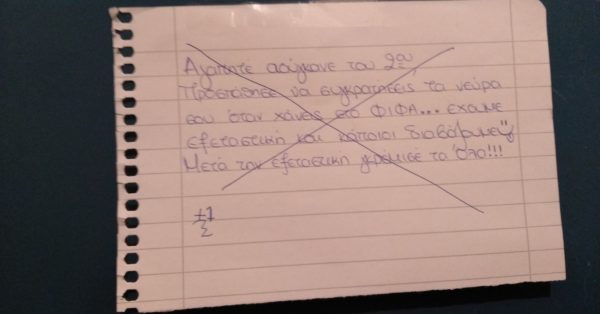 Αγαπητέ ασύγκανε του 2ου,
Προσπάθησε να συγκρατήσεις τα νεύρα
σου όταν χάνεις στο ΦΙΦΑ... έχουμε
εξεταστική και κάποιοι διαβάζουμε
Μετά την εξεταστική γκρέμισέ το όλο!!!
+1